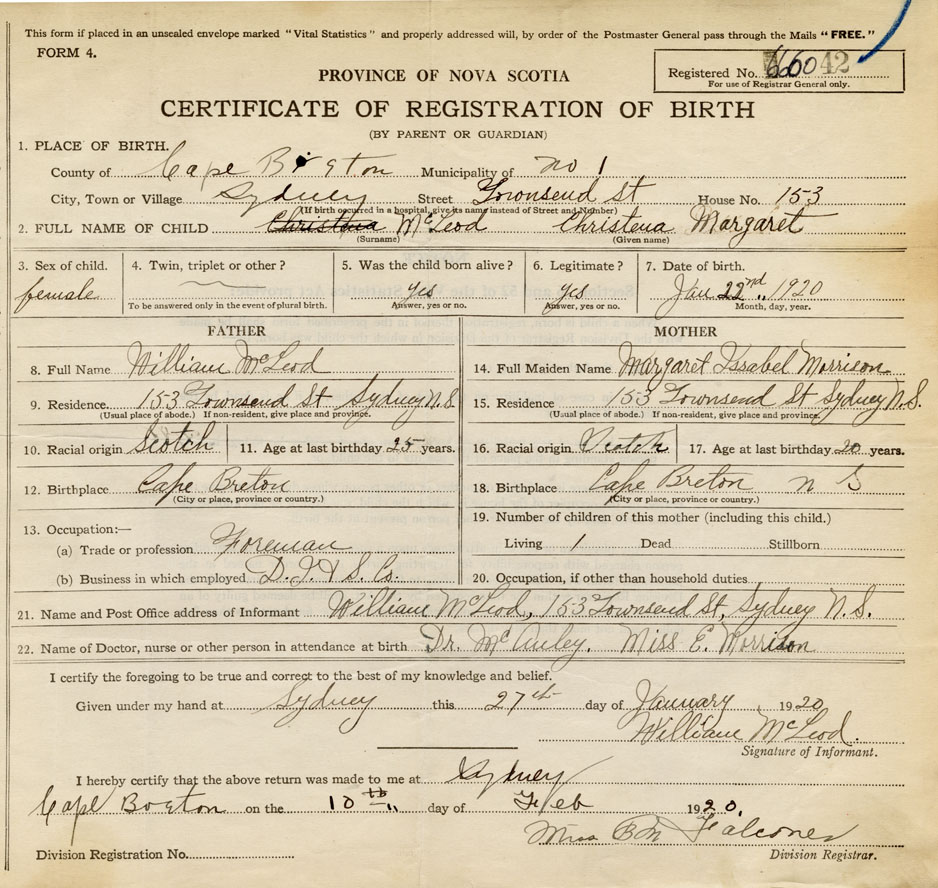 This form if placed in an unsealed envelope marked "Vital Statistics" and properly addressed will, by order of the Postmaster General pass through the Mails "FREE."
FORM 4.
PROVINCE OF NOVA SCOTIA
Registered No. 42
For use of Registrar General only.
CERTIFICATE OF REGISTRATION OF BIRTH
(BY PARENT OR GUARDIAN)
1. PLACE OF BIRTH.
County of Cape Breton Municipality of no 1
City, Town or Village Sydney Street Townsend St House No. 153
(If birth occurred in a hospital, give its name instead of Street and Number)
2. FULL NAME OF CHILD Christena McLeod Christena Margaret
(Surname) (Given name)
3. Sex of child. 4. Twin, triplet or other? 5. Was the child born alive? 6. Legitimate? 7. Date of birth.
female Yes Yes Jan 22nd 1920
To be answered only in the event of plural birth. Answer, yes or no. Answer, yes or no. Month, day, year.
FATHER MOTHER
8. Full Name William McLeod 14. Full Maiden Name Margaret Issabel Morrison
9. Residence 153 Townsend St Sydney N.S 15. Residence 153 Townsend St Sydney N.S.
(Usual place of above.) If non-resident, give place and province. (Usual place of above.) If non-resident, give place and province.
10. Racial origin Scotch 11. Age at last birthday 25 years. 16. Racial origin Scotch 17. Age at last birthday 20 years.
12. Birthplace Cape Breton 18. Birthplace Cape Breton n S
(City or place, province or country.) (City or place, province or country.)
13. Occupation:— 19. Number of children of this mother (including this child.)
(a) Trade or profession Foreman Living 1 Dead Stillborn
(b) Business in which employed D. I. & S. Co. 20. Occupation, if other than household duties
21. Name and Post Office address of Informant William McLeod, 153 Townsend St, Sydney N.S.
22. Name of Doctor, nurse or other person in attendance at birth Dr. McAuley. Miss E. Morrison
I certify the foregoing to be true and correct to the best of my knowledge and belief.
Given under my hand at Sydney this 27th day of January 1920
William McLeod.
Signature of Informant.
I hereby certify that the above return was made to me at Sydney
Cape Boeton on the 10th day of Feb 1920.
Miss B M Falconer
Division Registration No. Division Registrar.